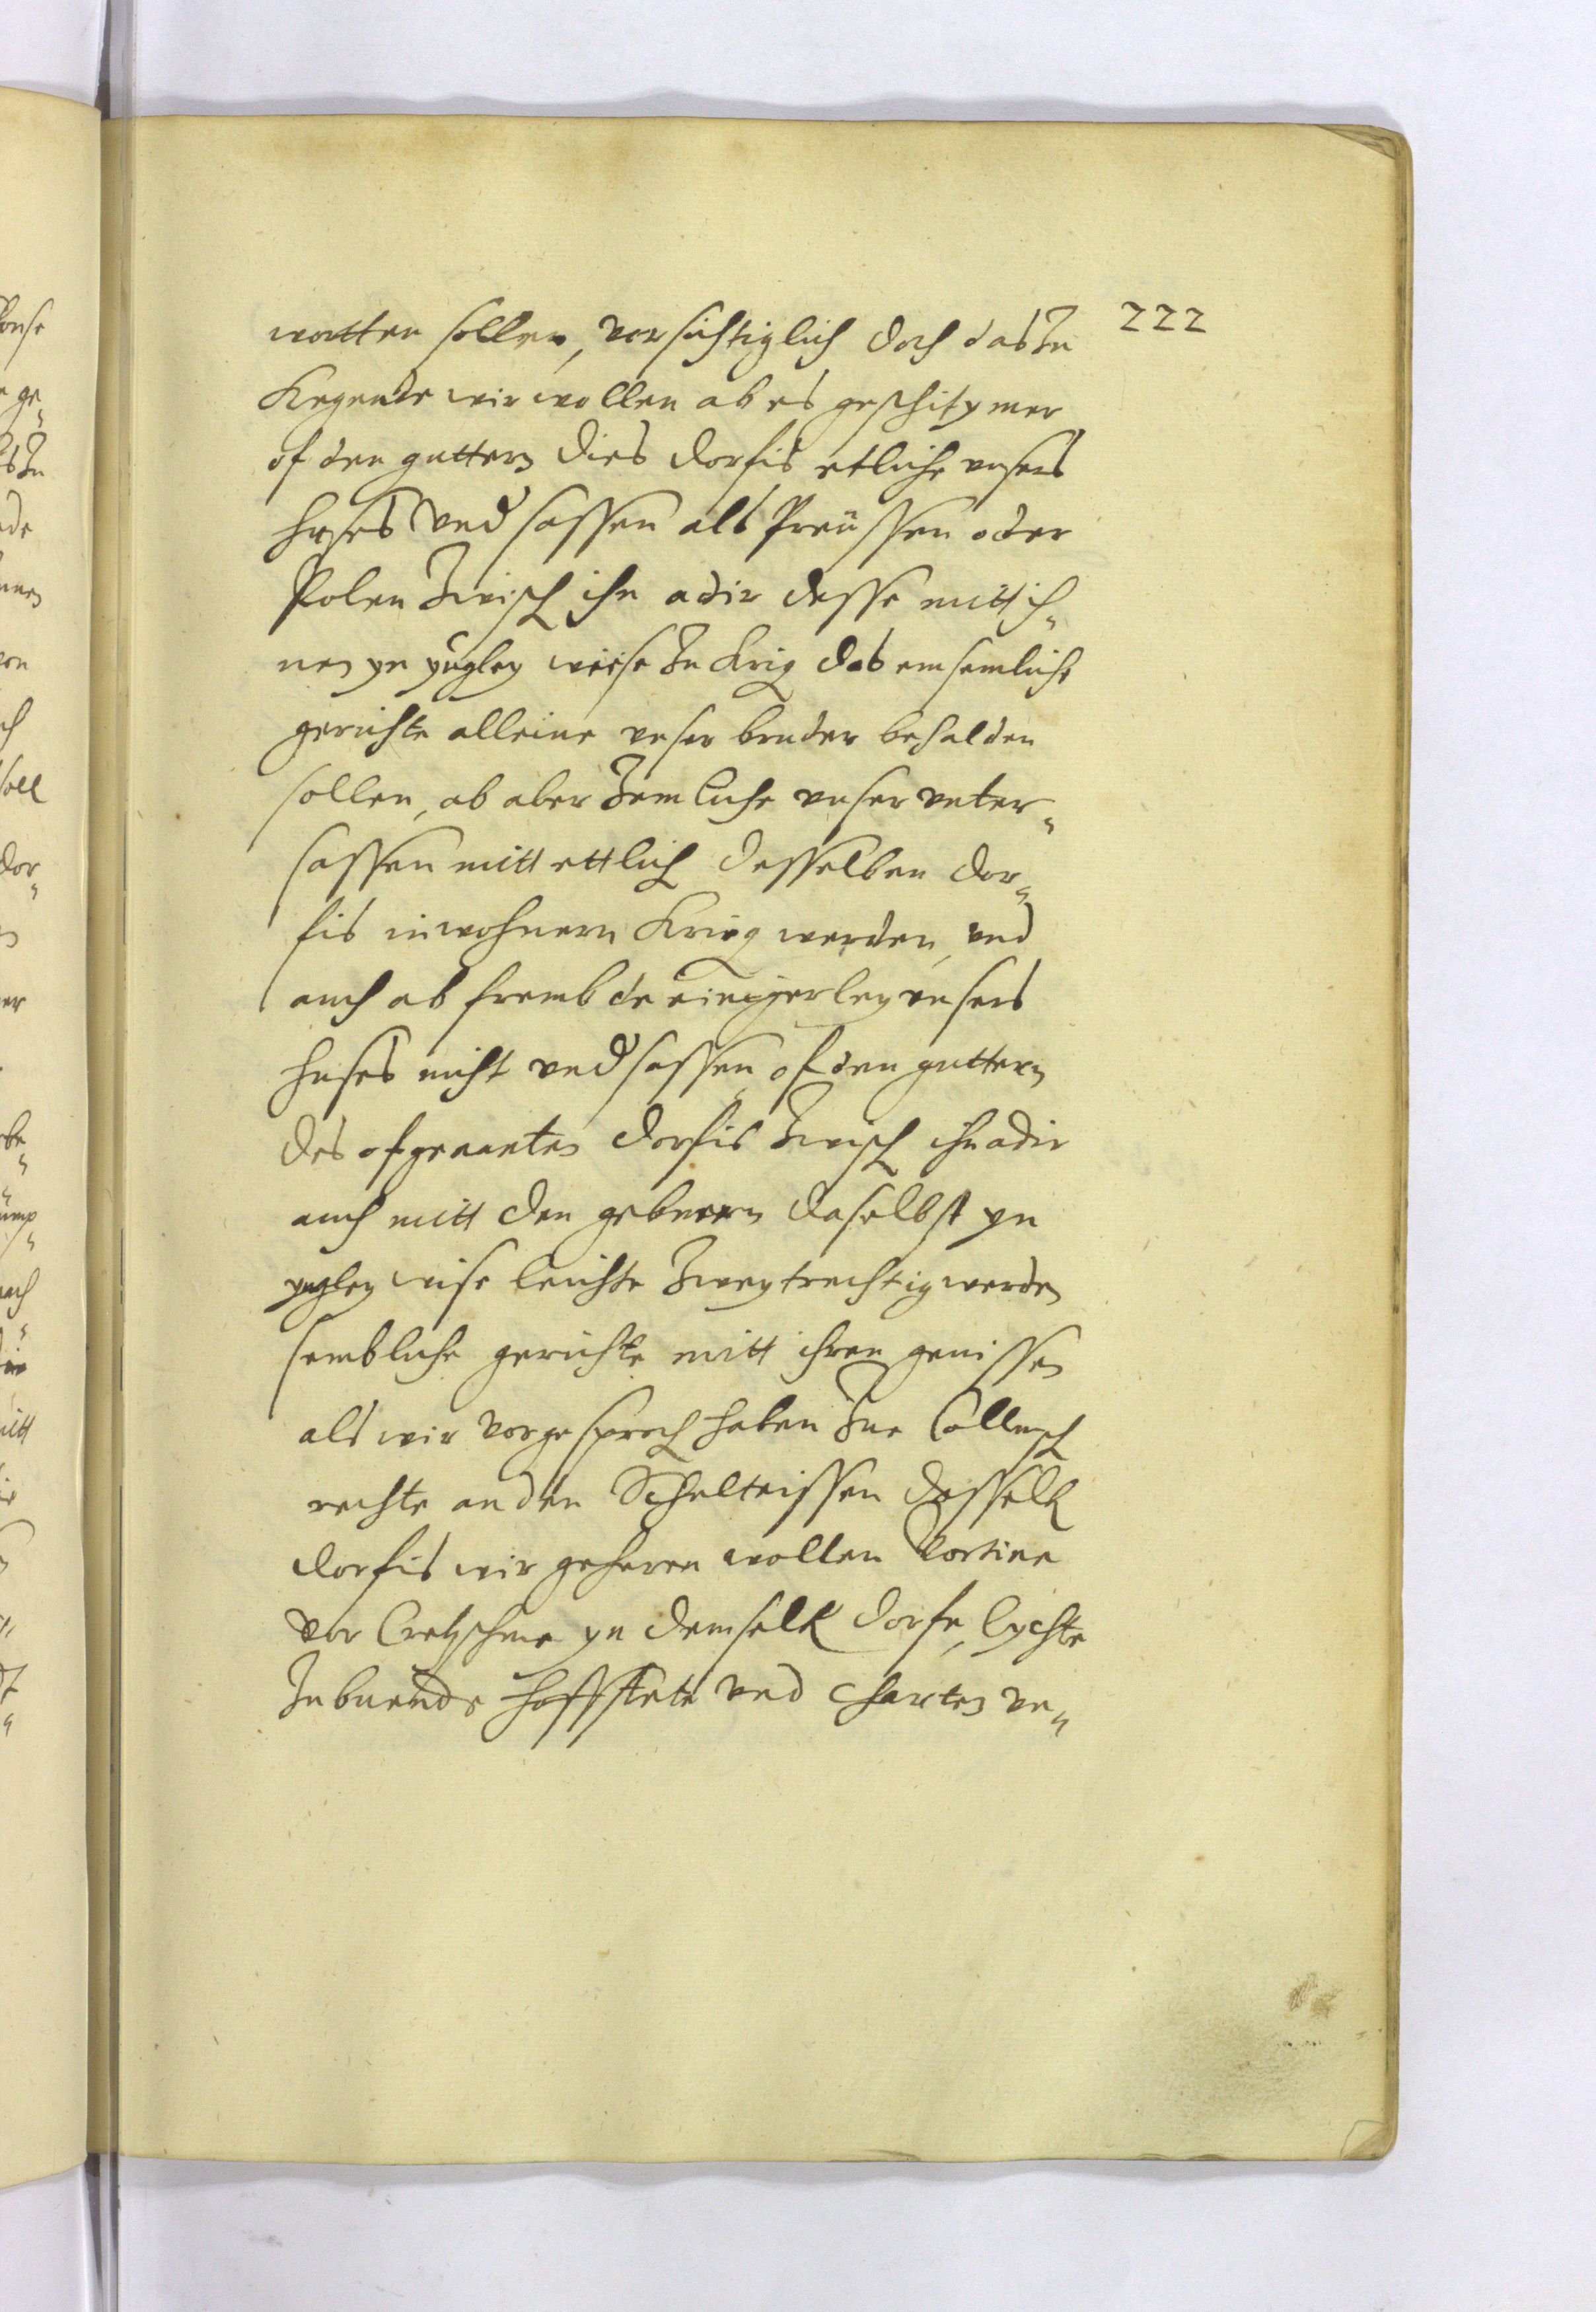 222
wartten sollen, vorsichtiglich doch das zu
Kegende wir wollen ab es geschit ymer
of den guttern dies dorfis etliche unsers
huses und sassen als Preüssen oder
Polen zwisch ihn adir desse mitt ih„
nen yn yngley weise zu krig das em semliche
gerichte alleine unser bruder behalden
sollen, ab aber zemliche unser unter„
sassen mitt ettlich desselben dor„
fis inwohnern Krieg werden, und
auch ab frembde einigerley unsers
huses nicht und sassen of den guttern
des ofgenanten dorfis zwisch ihn adir
auch mitt den gebuern daselbst yn
yngley wise leichte zweytrechtig werden
sembliche gerichte mitt ihren genissen
als wir vorgesproch haben zue Collmsch
rechte an den Scholteissen desselb
dorfis wir geheren wollen
vor Cretzschme yn demselb dorfe, lychte
zu buende hoffstete und charten un„